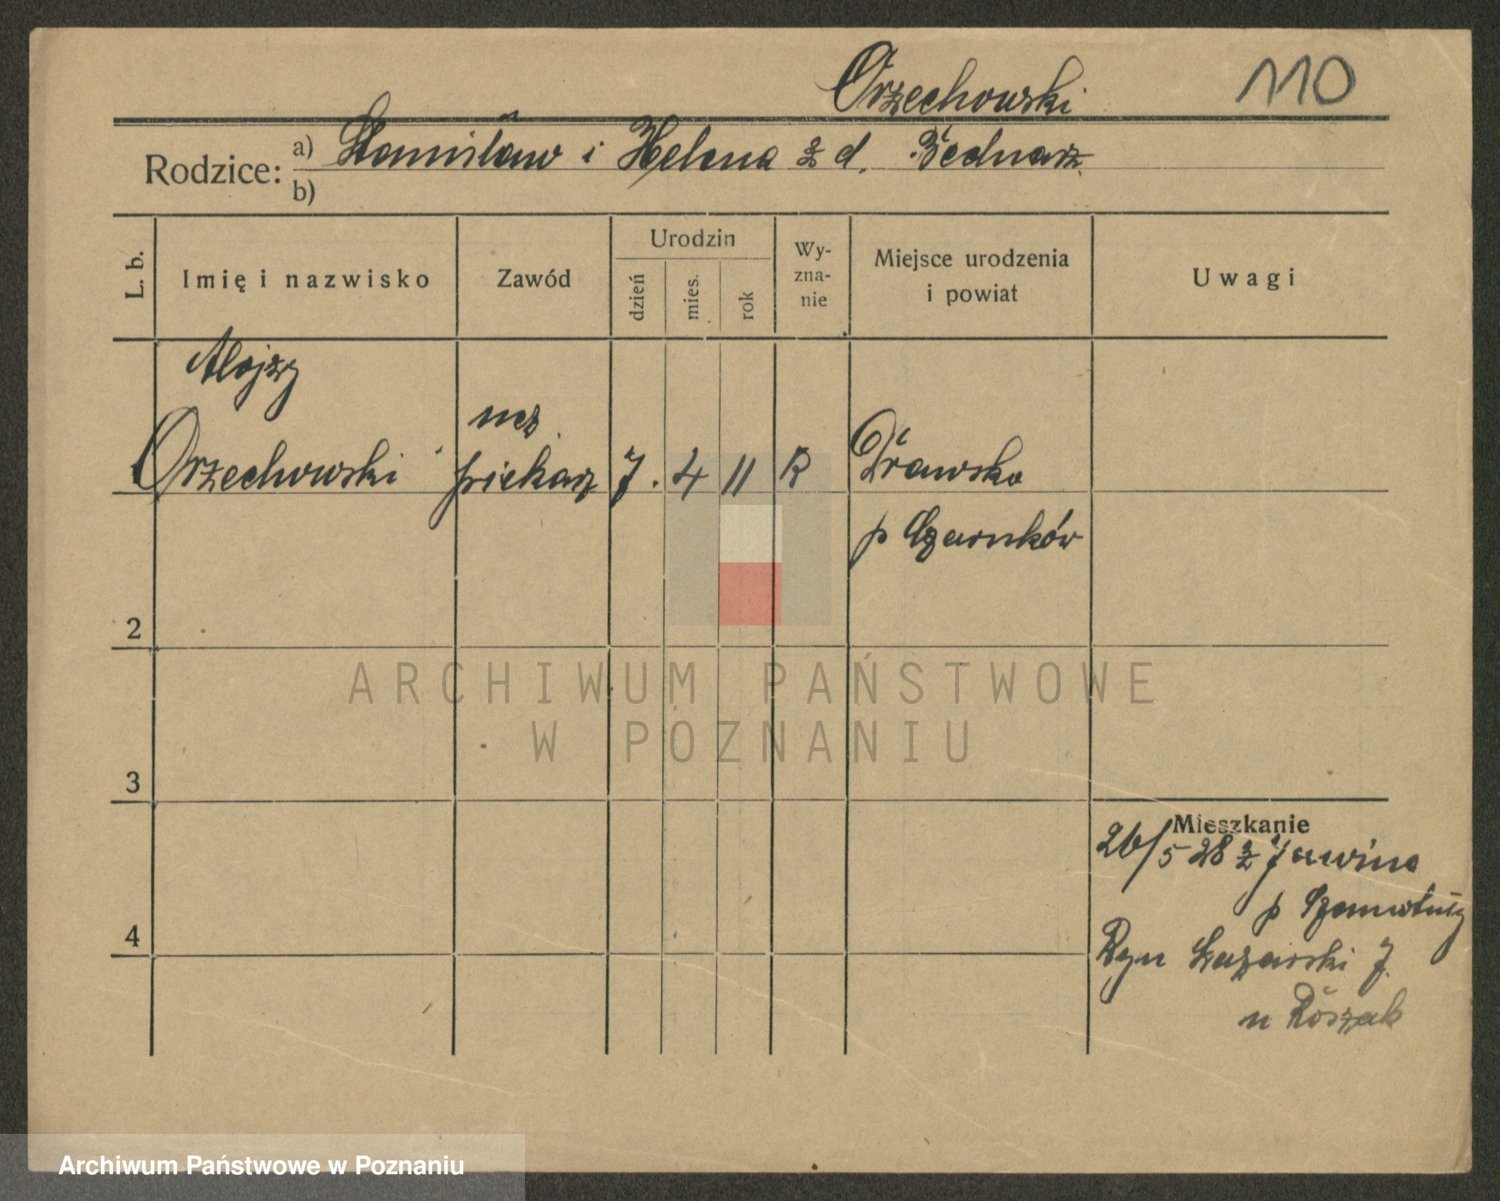 Orzechowski 110
Rodzice: a) Stanisław i Helena z d. Bednarz
b)
L. b. Imię i nazwisko Zawód Urodzin dzień mies. rok Wy-zna-nie Miejsce urodzenia i powiat Uwagi
Alojzy
Orzechowski
ucz.
piekarz 7. 4 11 R Drawsko
p Czarnków
2
3
4
Mieszkanie
26/5 28 z
p Szamotuły
Ryn Łazarski 7.
u Rószak
ARCHIWUM PAŃSTWOWE
W POZNANIU
Archiwum Państwowe w Poznaniu